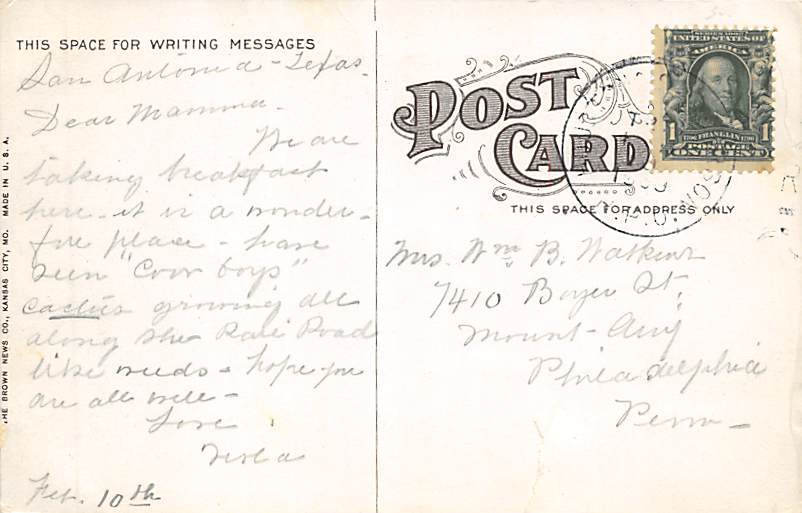 THIS SPACE FOR WRITING MESSAGES
San Antonio - Texas.
Dear Mamma -
We are
taking breakfast
here - it is a wonder-
ful place - have
seen "Cow boys"
cactus growing all
along the Rail Road
like weeds - hope you
are all well -
Love
Feb. 10th
THE BROWN NEWS CO., KANSAS CITY, MO. MADE IN U. S. A.
POST
CARD
THIS SPACE FOR ADDRESS ONLY
SERIES 1902
UNITED STATES OF
AMERICA
1 FRANKLIN 1
POSTAGE
ONE CENT
R.P.O.
Mrs. Wm B. Watkins
7410 Boyer St.
Mount - Airy
Philadelphia
Penn -